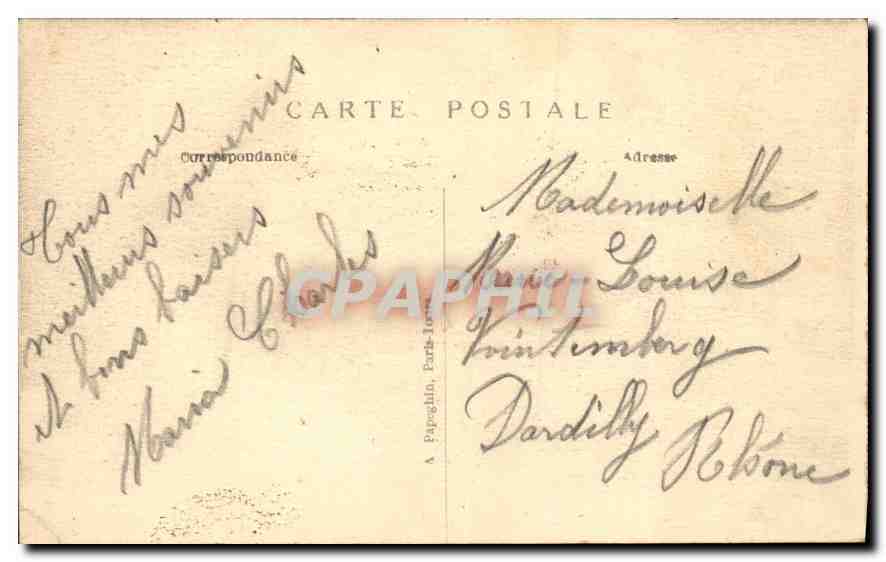 CARTE POSTALE
Correspondance
Adresse
Tous mes
meilleurs souvenirs
et bons baisers
Maria Charles
Mademoiselle
Marie-Louise
Vointemberg
Dardilly Rhône
A Papeghin, Paris-Tours
CPAPHIL